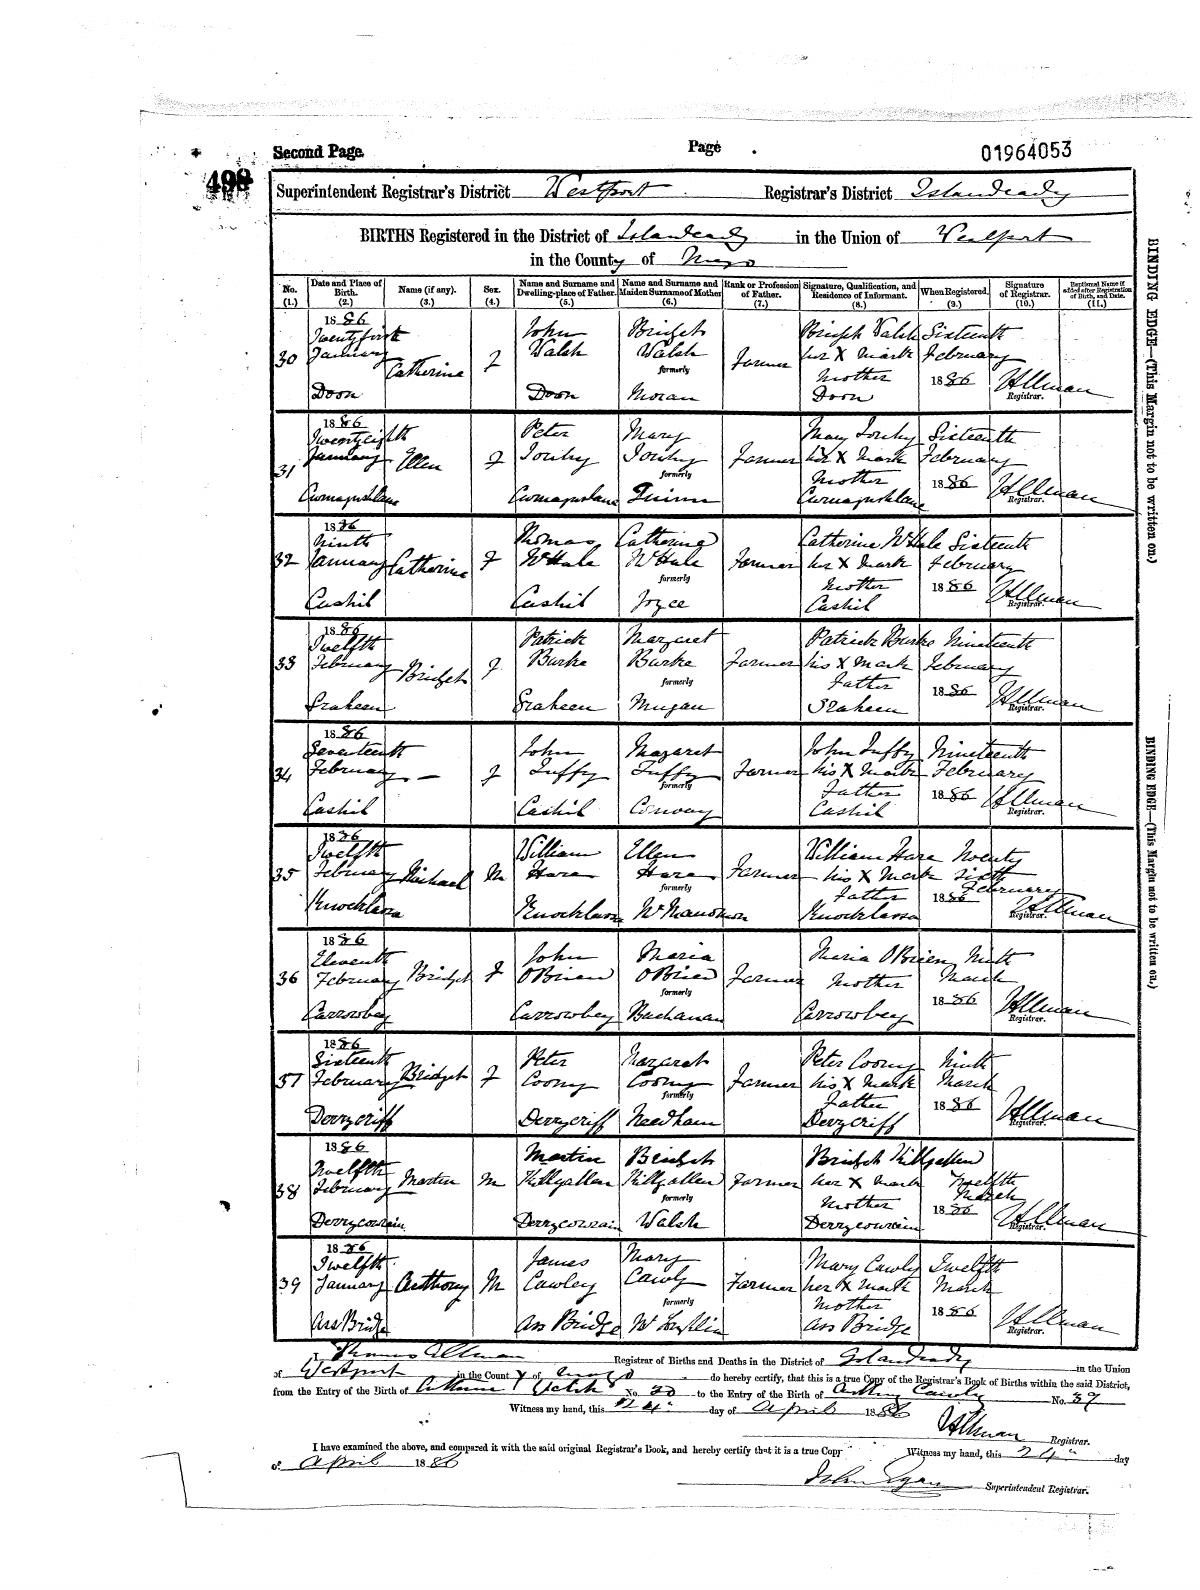 Second Page.
Page
01964053
498
Superintendent Registrar's District Westport Registrar's District Islandeady
BIRTHS Registered in the District of Islandeady in the Union of Westport
in the County of Mayo
No. (1.) Date and Place of Birth. (2.) Name (if any). (3.) Sex. (4.) Name and Surname and Dwelling-place of Father. (5.) Name and Surname and Maiden Surname of Mother (6.) Rank or Profession of Father. (7.) Signature, Qualification, and Residence of Informant. (8.) When Registered. (9.) Signature of Registrar. (10.) Baptismal Name if added after Registration of Birth, and Date. (11.)
30 1886 Twenty first January Doon Catherine F John Walsh Doon Bridget Walsh formerly Moran Farmer Bridget Walsh her X mark Mother Doon Sixteenth February 1886 TAllman Registrar.
31 1886 Twenty eighth January Ellen F Peter Mary formerly Quinn Farmer Mary her X mark Mother Sixteenth February 1886 TAllman Registrar.
32 1886 Ninth January Cashil Catherine F Thomas McHale Cashil Catherine McHale formerly Joyce Farmer Catherine McHale her X mark Mother Cashil Sixteenth February 1886 TAllman Registrar.
33 1886 Twelfth February Graheen Bridget F Patrick Burke Graheen Margaret Burke formerly Mugan Farmer Patrick Burke his X mark Father Graheen Nineteenth February 1886 TAllman Registrar.
34 1886 Seventeenth February Cashil — F John Tuffy Cashil Margaret Tuffy formerly Conway Farmer John Tuffy his X mark Father Cashil Nineteenth February 1886 TAllman Registrar.
35 1886 Twelfth February Knocklassa Michael M William Hara Knocklassa Ellen Hara formerly Farmer William Hara his X mark Father Knocklassa Twenty sixth February 1886 TAllman Registrar.
36 1886 Eleventh February Carrowbeg Bridget F John OBrien Carrowbeg Maria OBrien formerly Buchanan Farmer Maria OBrien Mother Carrowbeg Ninth March 1886 TAllman Registrar.
37 1886 Sixteenth February Derrycriff Bridget F Peter Coony Derrycriff Margaret Coony formerly Needham Farmer Peter Coony his X mark Father Derrycriff Ninth March 1886 TAllman Registrar.
38 1886 Twelfth February Derrycourain Martin M Martin Killgallen Derrycourain Bridget Killgallen formerly Walsh Farmer Bridget Killgallen her X mark Mother Derrycourain Twelfth March 1886 TAllman Registrar.
39 1886 Twelfth January Ass Bridge Anthony M James Cawley Ass Bridge Mary Cawly formerly McLoughlin Farmer Mary Cawly her X mark Mother Ass Bridge Twelfth March 1886 TAllman Registrar.
I Thomas Allman Registrar of Births and Deaths in the District of Islandeady in the Union
of Westport in the County of Mayo do hereby certify, that this is a true Copy of the Registrar's Book of Births within the said District,
from the Entry of the Birth of Catherine Walsh No. 30 to the Entry of the Birth of Anthony Cawly No. 39
Witness my hand, this 24" day of April 1886
TAllman Registrar.
I have examined the above, and compared it with the said original Registrar's Book, and hereby certify that it is a true Copy Witness my hand, this 24" day
of April 1886
John Superintendent Registrar.
BINDING EDGE—(This Margin not to be written on.)
BINDING EDGE—(This Margin not to be written on.)